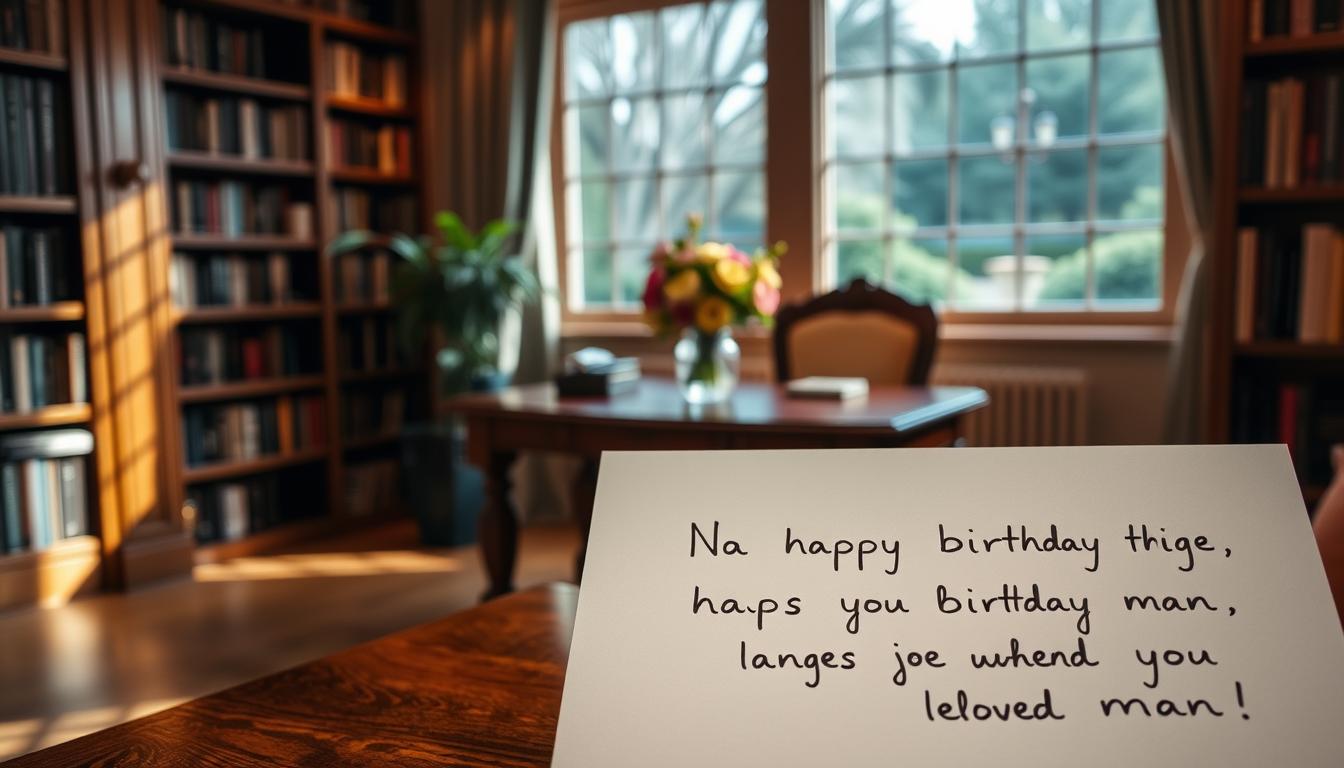 Na happy birthday thige,
haps you birttday man,
langes joe whend you
leloved man!